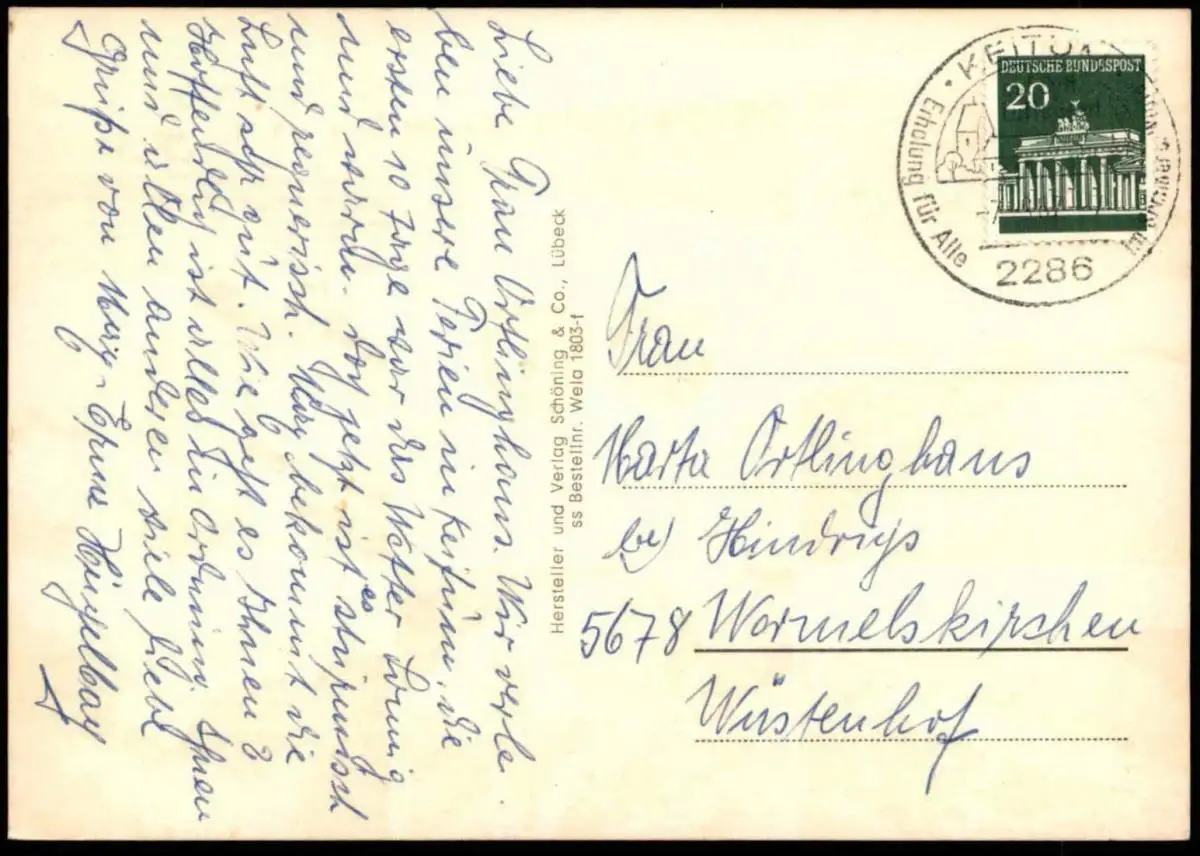 Liebe Frau Ortlinghaus. Wir verle-
ben unsere Ferien in Keitum, die
ersten 10 Tage war das Wetter sonnig
und warm. doch jetzt ist es stürmisch
und regnerisch. Mary bekommt die
Luft sehr gut. Wie geht es Ihnen?
Hoffentlich ist alles in Ordnung. Ihnen
und allen anderen viele liebe
Grüße von Mary
Hersteller und Verlag Schöning & Co., Lübeck
ss Bestellnr. Wela 1803-f
KEITUM
Erholung für Alle
2286
DEUTSCHE BUNDESPOST
20
Frau
Marta Ortlinghaus
bei Hindrichs
5678 Wermelskirchen
Wüstenhof